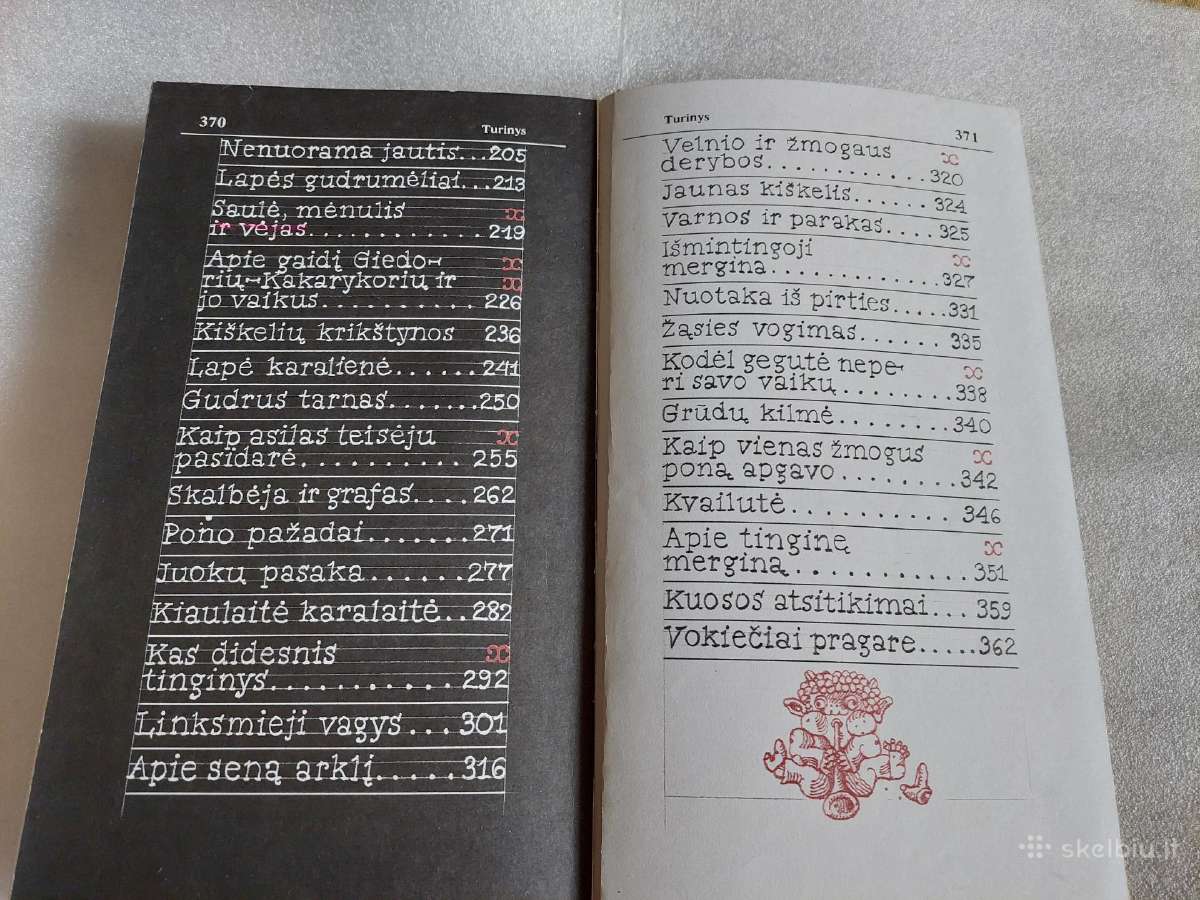 370
Turinys
Nenuorama jautis...205
Lapės gudrumėliai...213
Saulė, mėnulis
ir vėjas............219
Apie gaidį Giedo-
rių-Kakarykorių ir
jo vaikus............226
Kiškelių krikštynos 236
Lapė karalienė......241
Gudrus tarnas.......250
Kaip asilas teisėju
pasidarė............255
Skalbėja ir grafas....262
Pono pažadai.......271
Juokų pasaka......277
Kiaulaitė karalaitė...282
Kas didesnis
tinginys............292
Linksmieji vagys...301
Apie seną arklį.....316
Turinys
371
Velnio ir žmogaus
derybos............320
Jaunas kiškelis......324
Varnos ir parakas....325
Išmintingoji
mergina............327
Nuotaka iš pirties.....331
Žąsies vogimas......335
Kodėl gegutė nepe-
ri savo vaikų........338
Grūdų kilmė........340
Kaip vienas žmogus
poną apgavo........342
Kvailutė..........346
Apie tinginę
merginą............351
Kuosos atsitikimai...359
Vokiečiai pragare.....362
skelbiu.lt